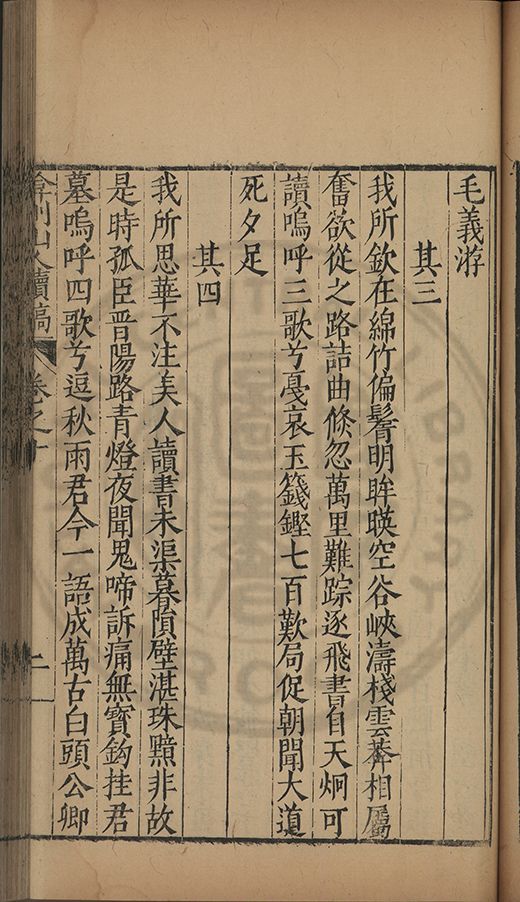 毛義游
其三
我所欽在綿竹偏髾明眸暎空谷峽濤棧雲莽相屬
奮欲從之路詰曲倏忽萬里難踪逐飛書自天炯可
讀嗚呼三歌兮戞哀玉籛鏗七百歎局促朝聞大道
死夕足
其四
我所思華不注美人讀書未渠暮隕璧湛珠黯非故
是時孤臣晋陽路青燈夜聞鬼啼訴痛無寳鈎挂君
墓嗚呼四歌兮逗秋雨君今一語成萬古白頭公卿
弇州山人續稿 卷之
二